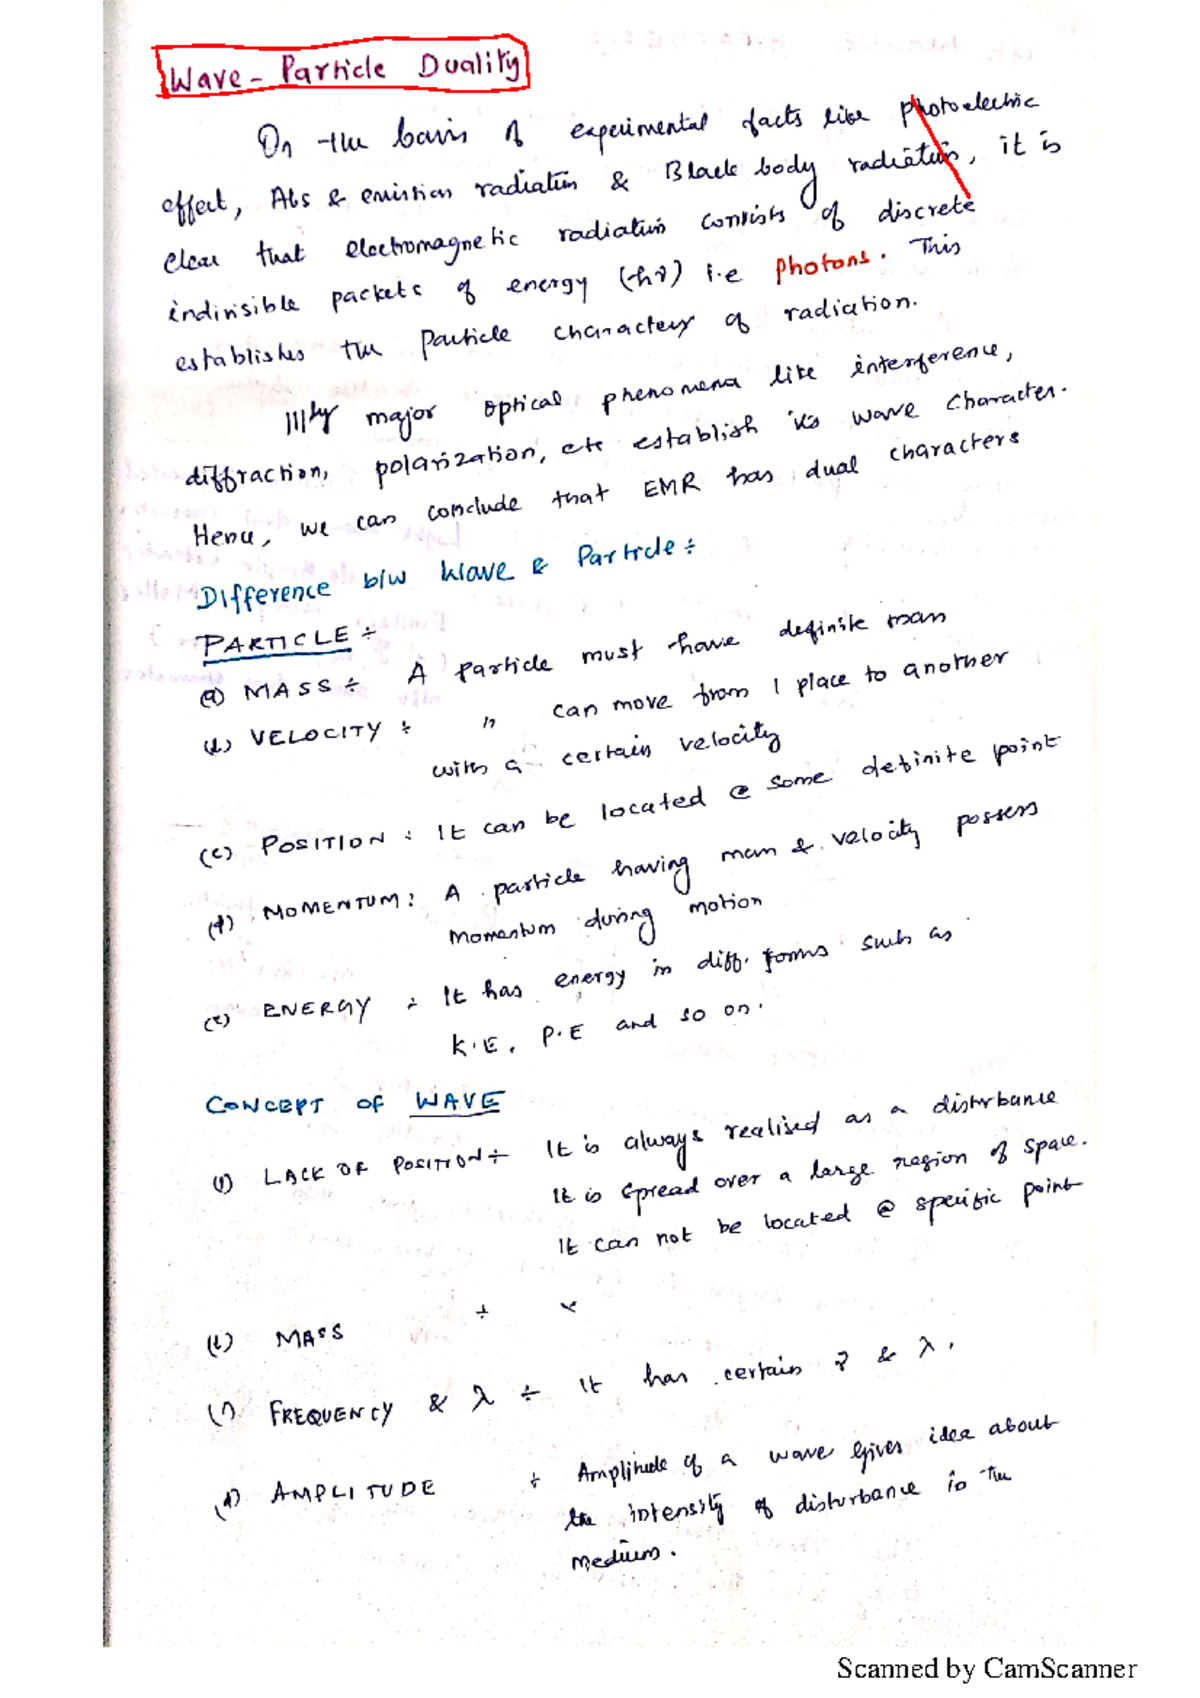 Wave - Particle Duality
On the basis of experimental facts like photoelectric
effect, Abs & emission radiation & Black body radiation, it is
clear that electromagnetic radiation consists of discrete
indivisible packets of energy (hν) i.e photons. This
establishes the Particle character of radiation.
|||ly major optical phenomena like interference,
diffraction, polarization, etc establish its wave character.
Hence, we can conclude that EMR has dual characters
Difference b/w Wave & Particle ÷
PARTICLE ÷
(a) MASS ÷ A particle must have definite mass
(b) VELOCITY ÷ " can move from 1 place to another
with a certain velocity
(c) POSITION : It can be located @ some definite point
(d) MOMENTUM : A particle having mass & velocity possess
Momentum during motion
(e) ENERGY ÷ It has energy in diff. forms such as
K.E, P.E and so on.
CONCEPT OF WAVE
(1) LACK OF POSITION ÷ It is always realised as a disturbance
It is spread over a large region of space.
It can not be located @ specific point
(b) MASS ÷ x
(c) FREQUENCY & λ ÷ It has certain ν & λ.
(d) AMPLITUDE ÷ Amplitude of a wave gives idea about
the intensity of disturbance in the
medium.
Scanned by CamScanner